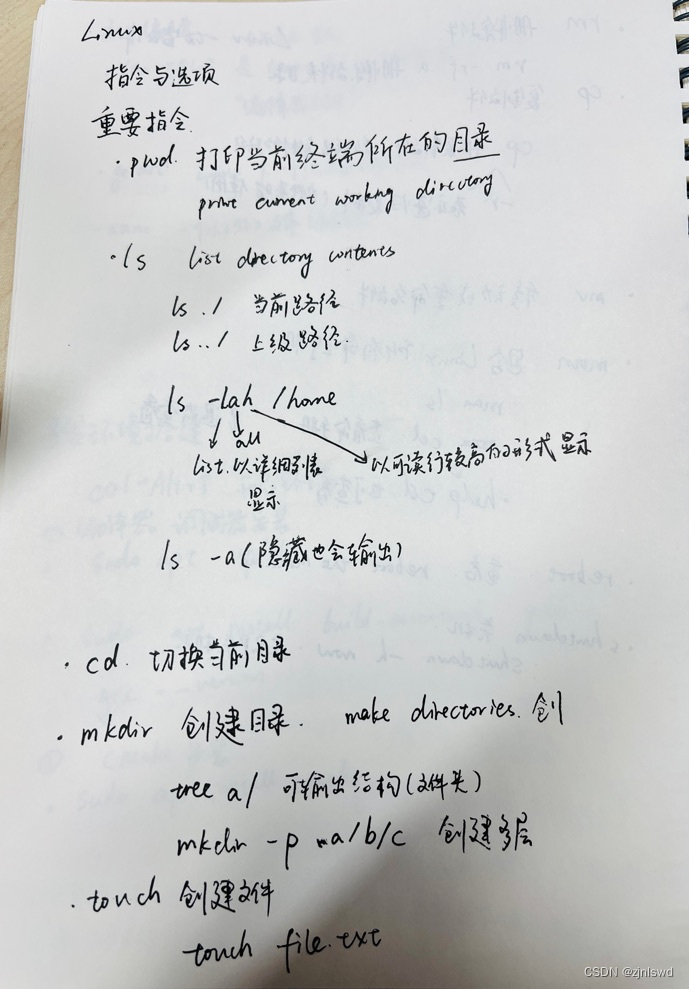 Linux
指令与选项
重要指令
· pwd. 打印当前终端所在的目录
print current working directory
· ls list directory contents
ls ./ 当前路径
ls ../ 上级路径.
ls -lah /home
all
list.以详细列表 以可读行较高的形式显示
显示
ls -a(隐藏也会输出)
· cd. 切换当前目录
· mkdir 创建目录. make directories. 创
tree a/ 可输出结构(文件夹)
mkdir -p a/b/c 创建多层
· touch 创建文件
touch file.txt
CSDN @zjnlswd